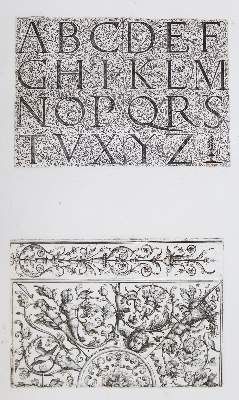 ABCDEF
GHIKLM
NOPQRS
TVXYZ